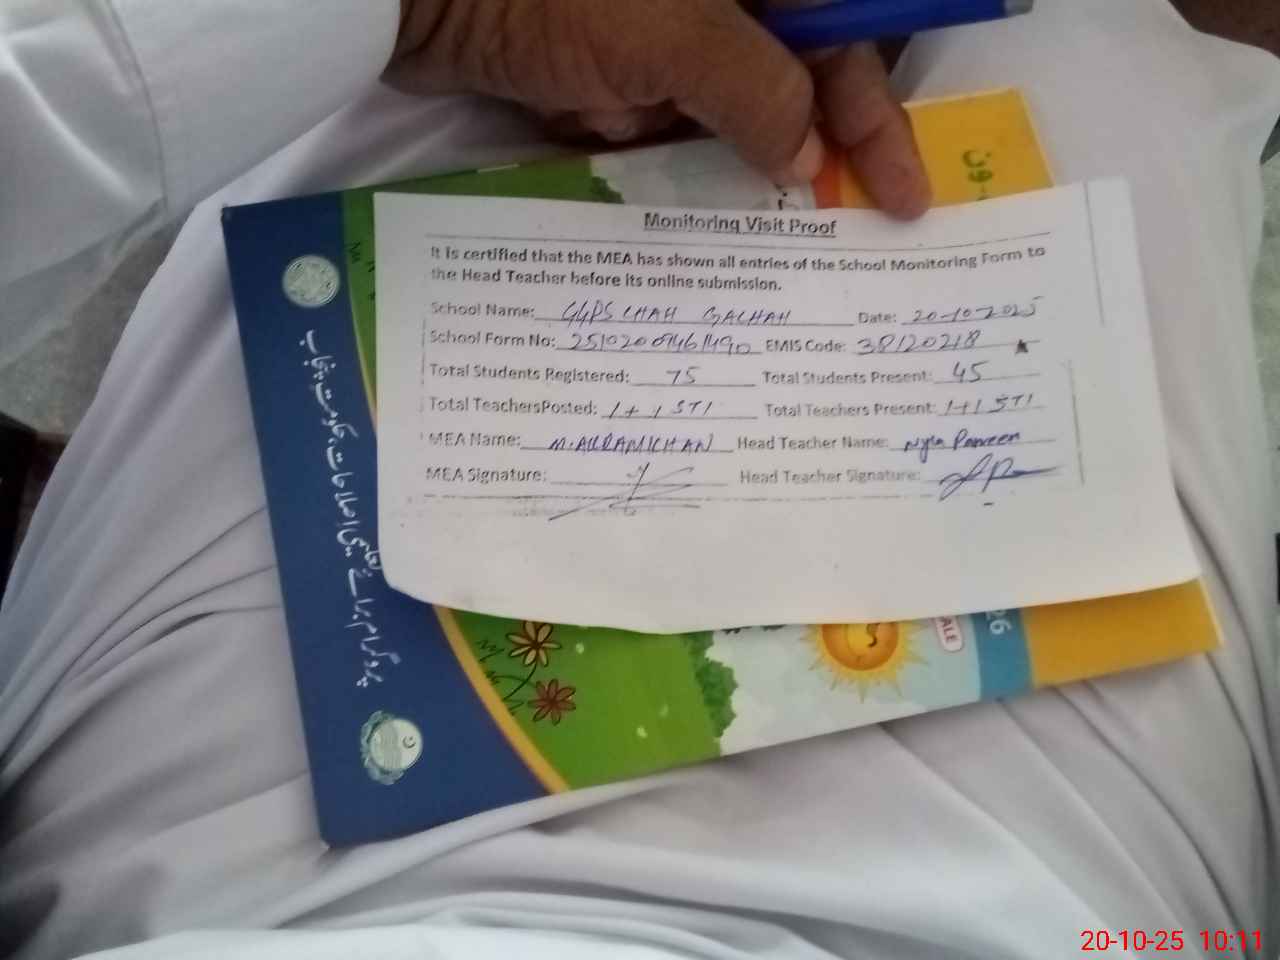 Monitoring Visit Proof
It is certified that the MEA has shown all entries of the School Monitoring Form to
the Head Teacher before its online submission.
School Name: GGPS CHAH GALHAH Date: 20-10-2025
School Form No: EMIS Code: 38120218
Total Students Registered: 75 Total Students Present: 45
Total TeachersPosted: 1+1 STI Total Teachers Present: 1+1 STI
MEA Name: M.AKRAM KHAN Head Teacher Name: Nyla Parveen
MEA Signature: Head Teacher Signature:
پروگرام برائے تعلیمی اصلاحات، حکومت پنجاب
26
ALE
20-10-25 10:11